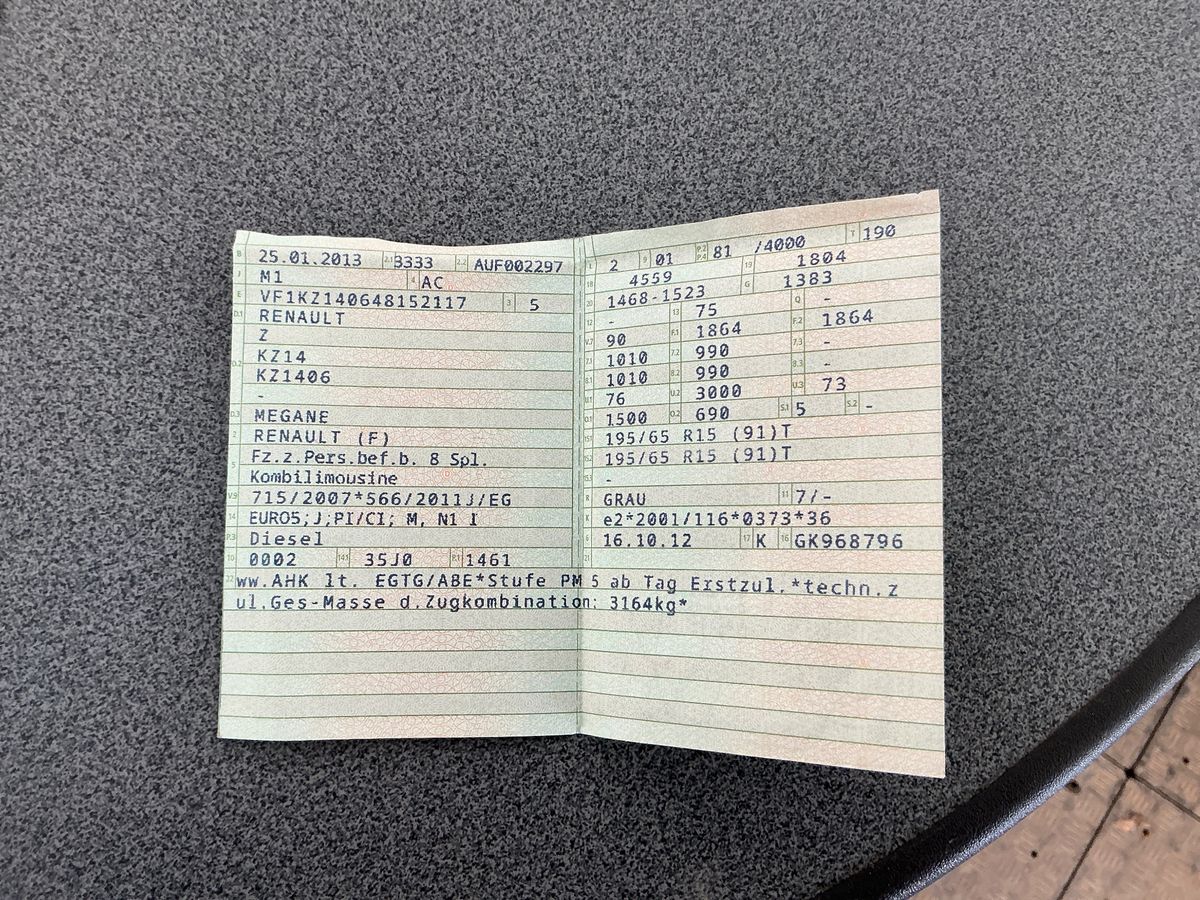 B 25.01.2013 2.1 3333 2.2 AUF002297
J M1 4 AC
E VF1KZ140648152117 3 5
D.1 RENAULT
Z
D.2 KZ14
KZ1406
-
D.3 MEGANE
2 RENAULT (F)
5 Fz.z.Pers.bef.b. 8 Spl.
Kombilimousine
V.9 715/2007*566/2011J/EG
14 EURO5;J;PI/CI; M, N1 I
P.3 Diesel
10 0002 14.1 35J0 P.1 1461
L 2 9 01 P.2 P.4 81 /4000 T 190
18 4559 19 1804
20 1468-1523 G 1383
12 - 13 75 Q -
V.7 90 F.1 1864 F.2 1864
7.1 1010 7.2 990 7.3 -
8.1 1010 8.2 990 8.3 -
U.1 76 U.2 3000 U.3 73
O.1 1500 O.2 690 S.1 5 S.2 -
15.1 195/65 R15 (91)T
15.2 195/65 R15 (91)T
15.3 -
R GRAU 11 7/-
K e2*2001/116*0373*36
6 16.10.12 17 K 16 GK968796
21
22 ww.AHK lt. EGTG/ABE*Stufe PM 5 ab Tag Erstzul.*techn.z
ul.Ges-Masse d.Zugkombination: 3164kg*